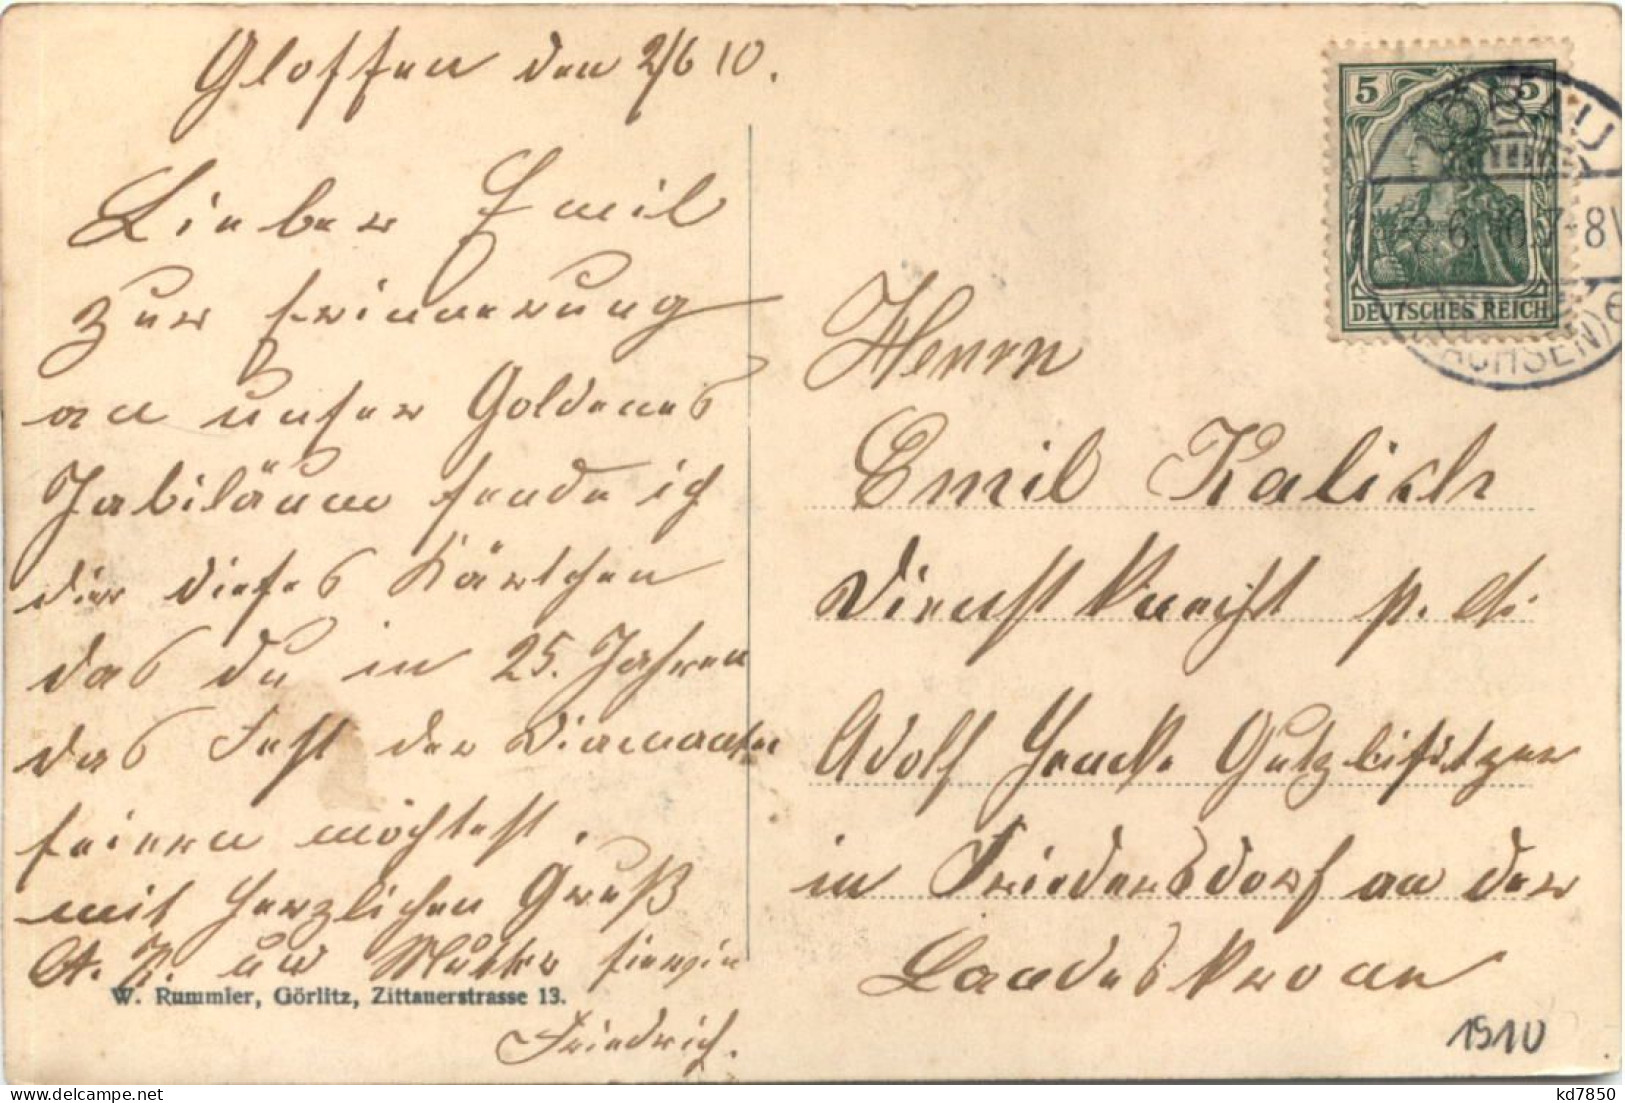 Glossen den 2/6 10.
Lieber Emil
zur Erinnerung
an unser Goldenes
Jubiläum sende ich
dir dieses Kärtchen
das du in 25. Jahren
das Fest der Diamanten
feiern möchtest.
mit herzlichen Gruß
A. K. und Mutter
W. Rummler, Görlitz, Zittauerstrasse 13.
Friedrich.
5 5
DEUTSCHES REICH
LÖBAU
2.6.10.7-8V
(SACHSEN) e
Herrn
Emil Kalich
Dienstknecht p. A.
Adolf Gutzbesitzer
in Friedersdorf an der
Landeskrone
1910
kd7850